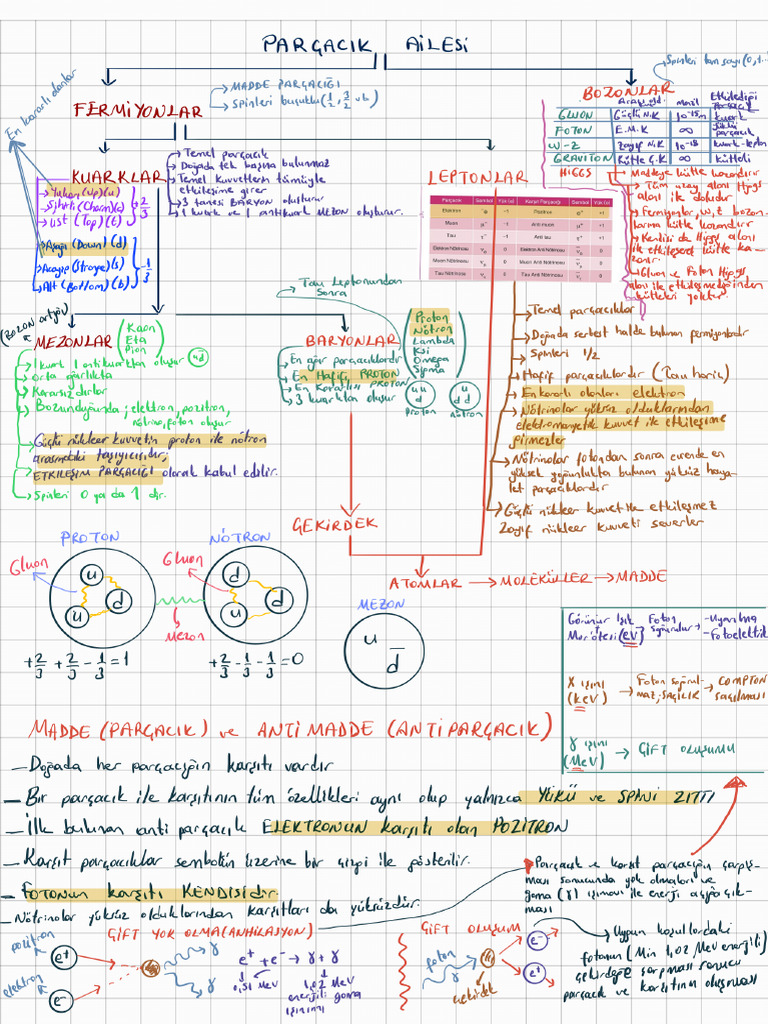 PARÇACIK AİLESİ
Spinleri tam sayı (0, 1..
FERMİYONLAR
MADDE PARÇACIĞI
Spinleri buçuklu (1/2, 3/2 v.b)
En kararlı olanlar
BOZONLAR
Aracı old. Menzil Etkilediği parçacık
GLUON Güçlü N.K 10⁻¹⁵m kuark
FOTON E.M.K ∞ yüklü parçacık
W-Z Zayıf N.K 10⁻¹⁸ kuark-lepton
GRAVİTON Kütle Ç.K ∞ kütleli
HIGGS → Maddeye kütle kazandırır
Tüm uzay alanı Higgs
alanı ile doludur
Fermiyonlar, w, z bozon-
larına kütle kazandırır
Kendisi de Higgs alanı
ile etkileşerek kütle ka-
zanır.
Gluon ve Foton Higgs
alanı ile etkileşmediğinden
kütleleri yoktur.
KUARKLAR
Temel parçacık
Doğada tek başına bulunmaz
Temel kuvvetlerin tümüyle
etkileşime girer
3 tanesi BARYON oluşturur
1 kuark ve 1 antikuark MEZON oluşturur.
Yukarı (Up) (u)
Sihirli (Charm) (c)
Üst (Top) (t)
2/3
Aşağı (Down) (d)
Acayip (Strange) (s)
Alt (Bottom) (b)
-1/3
LEPTONLAR
Parçacık Sembol Yük (e) Karşıt Parçacık Sembol Yük (e)
Elektron e⁻ -1 Pozitron e⁺ +1
Muon μ⁻ -1 Anti muon μ⁺ +1
Tau τ⁻ -1 Anti tau τ⁺ +1
Elektron Nötrinosu νe 0 Elektron Anti Nötrinosu ν̄e 0
Muon Nötrinosu νμ 0 Muon Anti Nötrinosu ν̄μ 0
Tau Nötrinosu ντ 0 Tau Anti Nötrinosu ν̄τ 0
Temel parçacıklar
Doğada serbest halde bulunan fermiyonlardır
Spinleri 1/2
Hafif parçacıklardır (Tau hariç)
En kararlı olanları elektron
Nötrinolar yüksüz olduklarından
elektromanyetik kuvvet ile etkileşime
girmezler
Nötrinolar fotondan sonra evrende en
yüksek yoğunlukta bulunan yüksüz haya-
let parçacıklardır
Güçlü nükleer kuvvetle etkileşmez
Zayıf nükleer kuvveti severler
(BOZON artıyor)
MEZONLAR (Kaon
Eta
Pion)
1 kuark 1 antikuarktan oluşur ud̄
Orta ağırlıkta
Kararsızdırlar
Bozunduğunda; elektron, pozitron,
nötrino, foton oluşur
Güçlü nükleer kuvvetin proton ile nötron
arasındaki taşıyıcısıdır;
ETKİLEŞİM PARÇACIĞI olarak kabul edilir.
Spinleri 0 ya da 1 dir.
Tau Leptonundan
Sonra
BARYONLAR
(Proton
Nötron
Lambda
Ksi
Omega
Sigma)
En ağır parçacıklardır
En Hafifi PROTON
En Kararlısı PROTON
3 kuarktan oluşur
u u d
proton
u d d
nötron
ÇEKİRDEK
ATOMLAR → MOLEKÜLLER → MADDE
PROTON
NÖTRON
Gluon
Gluon
u
u
d
d
u
d
Mezon
+2/3 +2/3 -1/3 = 1
+2/3 -1/3 -1/3 = 0
MEZON
u
d̄
Görünür Işık
Morötesi (eV)
Foton
soğurulur
- Uyarılma
- Fotoelektrik
X ışını
(keV)
Foton soğurul-
maz, saçılır
COMPTON
saçılması
γ ışını
(MeV)
ÇİFT OLUŞUMU
MADDE (PARÇACIK) ve ANTİMADDE (ANTİPARÇACIK)
- Doğada her parçacığın karşıtı vardır
- Bir parçacık ile karşıtının tüm özellikleri aynı olup yalnızca YÜKÜ ve SPİNİ ZITTI
- İlk bulunan anti parçacık ELEKTRONUN karşıtı olan POZİTRON
- Karşıt parçacıklar sembolün üzerine bir çizgi ile gösterilir.
- FOTONUN karşıtı KENDİSİdir.
- Nötrinolar yüksüz olduklarından karşıtları da yüksüzdür.
Parçacık ve karşıt parçacığın çarpış-
ması sonucunda yok olmaları ve
gama (γ) ışıması ile enerji açığa çık-
ması
ÇİFT YOK OLMA (ANHİLASYON)
pozitron
e⁺
elektron
e⁻
γ
γ
e⁺ + e⁻ → γ + γ
0,51 MeV
1,02 MeV
enerjili gama
ışınımı
ÇİFT OLUŞUM
foton
γ
çekirdek
e⁻
e⁺
Uygun koşullardaki
fotonun (Min 1,02 MeV enerjili)
çekirdeğe çarpması sonucu
parçacık ve karşıtının oluşması